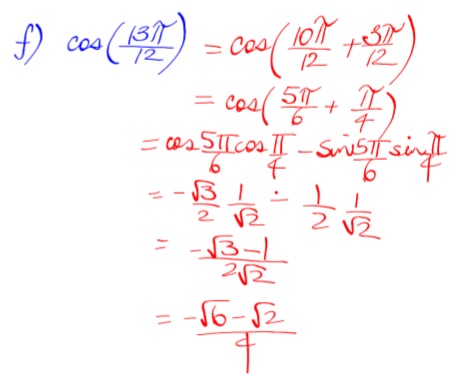 f) cos(13π/12) = cos(10π/12 + 3π/12)
= cos(5π/6 + π/4)
= cos 5π/6 cos π/4 - sin 5π/6 sin π/4
= -√3/2 1/√2 - 1/2 1/√2
= (-√3-1)/(2√2)
= (-√6-√2)/4